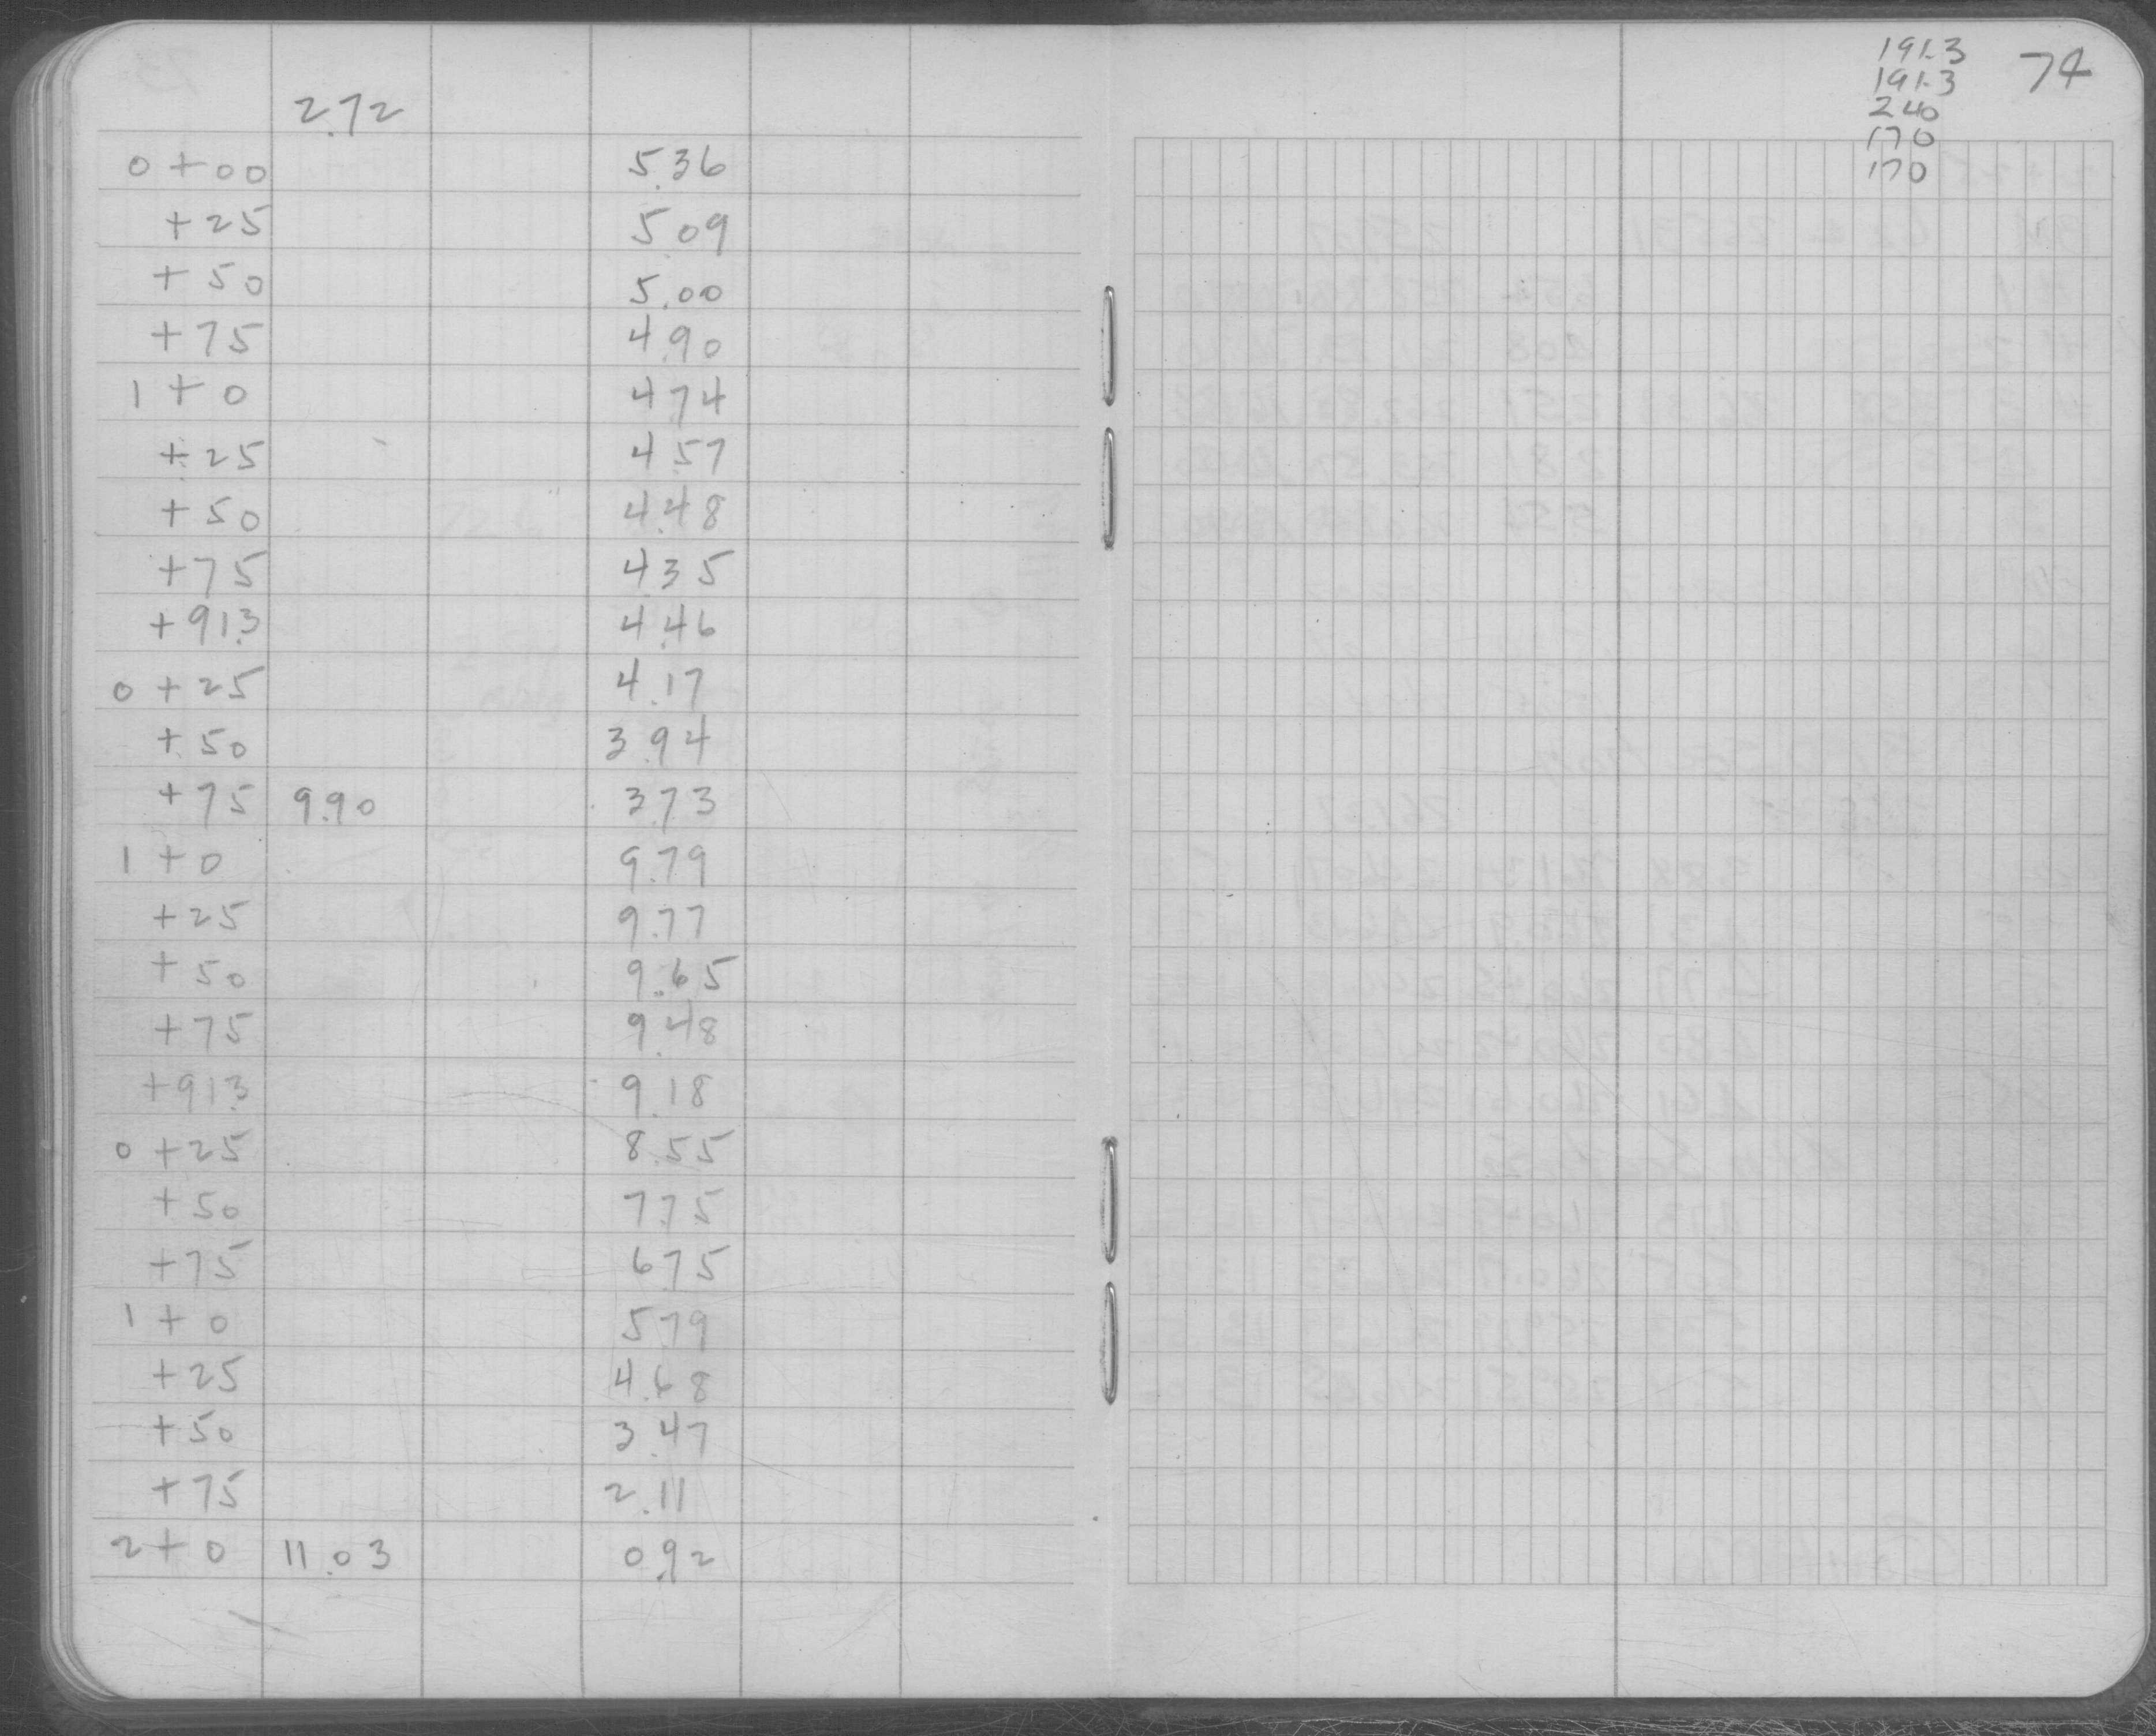 2.72
0+00 5.36
+25 5.09
+50 5.00
+75 4.90
1+0 4.74
+25 4.57
+50 4.48
+75 4.35
+91.3 4.46
0+25 4.17
+50 3.94
+75 9.90 3.73
1+0 9.79
+25 9.77
+50 9.65
+75 9.48
+91.3 9.18
0+25 8.55
+50 7.75
+75 6.75
1+0 5.79
+25 4.68
+50 3.47
+75 2.11
2+0 11.03 0.92
74
191.3
191.3
240
170
170